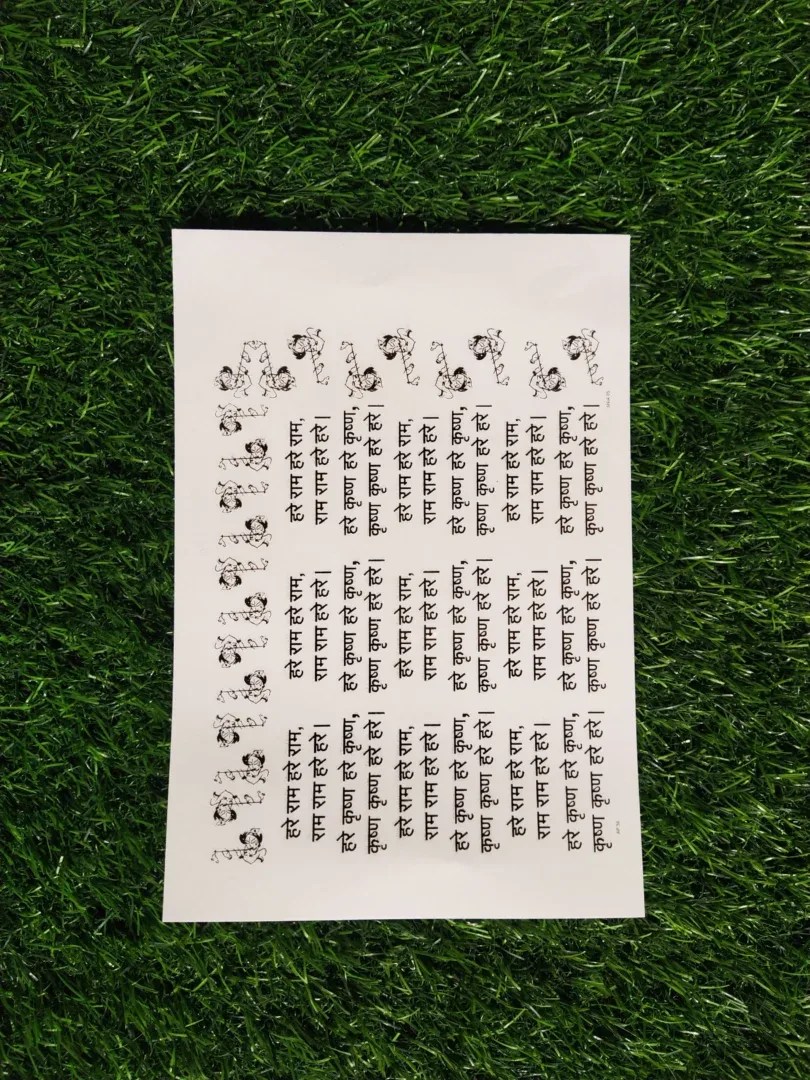 हरे राम हरे राम,
राम राम हरे हरे।
हरे कृष्ण हरे कृष्ण,
कृष्ण कृष्ण हरे हरे।
हरे राम हरे राम,
राम राम हरे हरे।
हरे कृष्ण हरे कृष्ण,
कृष्ण कृष्ण हरे हरे।
हरे राम हरे राम,
राम राम हरे हरे।
हरे कृष्ण हरे कृष्ण,
कृष्ण कृष्ण हरे हरे।
हरे राम हरे राम,
राम राम हरे हरे।
हरे कृष्ण हरे कृष्ण,
कृष्ण कृष्ण हरे हरे।
हरे राम हरे राम,
राम राम हरे हरे।
हरे कृष्ण हरे कृष्ण,
कृष्ण कृष्ण हरे हरे।
हरे राम हरे राम,
राम राम हरे हरे।
हरे कृष्ण हरे कृष्ण,
कृष्ण कृष्ण हरे हरे।
हरे राम हरे राम,
राम राम हरे हरे।
हरे कृष्ण हरे कृष्ण,
कृष्ण कृष्ण हरे हरे।
हरे राम हरे राम,
राम राम हरे हरे।
हरे कृष्ण हरे कृष्ण,
कृष्ण कृष्ण हरे हरे।
हरे राम हरे राम,
राम राम हरे हरे।
हरे कृष्ण हरे कृष्ण,
कृष्ण कृष्ण हरे हरे।